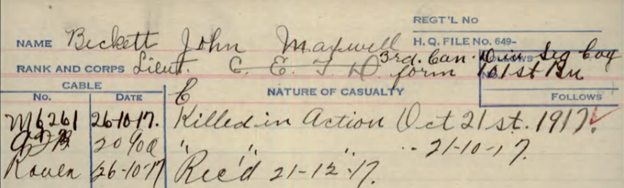 REGT'L No
NAME Beckett John Maxwell H. Q. FILE No. 649-
3rd. Can. Div. Sig Coy
RANK AND CORPS Lieut. C. E. T. D. form 101st Bn
CABLE NATURE OF CASUALTY
No. DATE FOLLOWS
C
M6261 26-10-17. Killed in Action Oct 21st. 1917.
" " " .. 21-10-17.
Rouen 26-10-17 Rec'd 21-12-17.